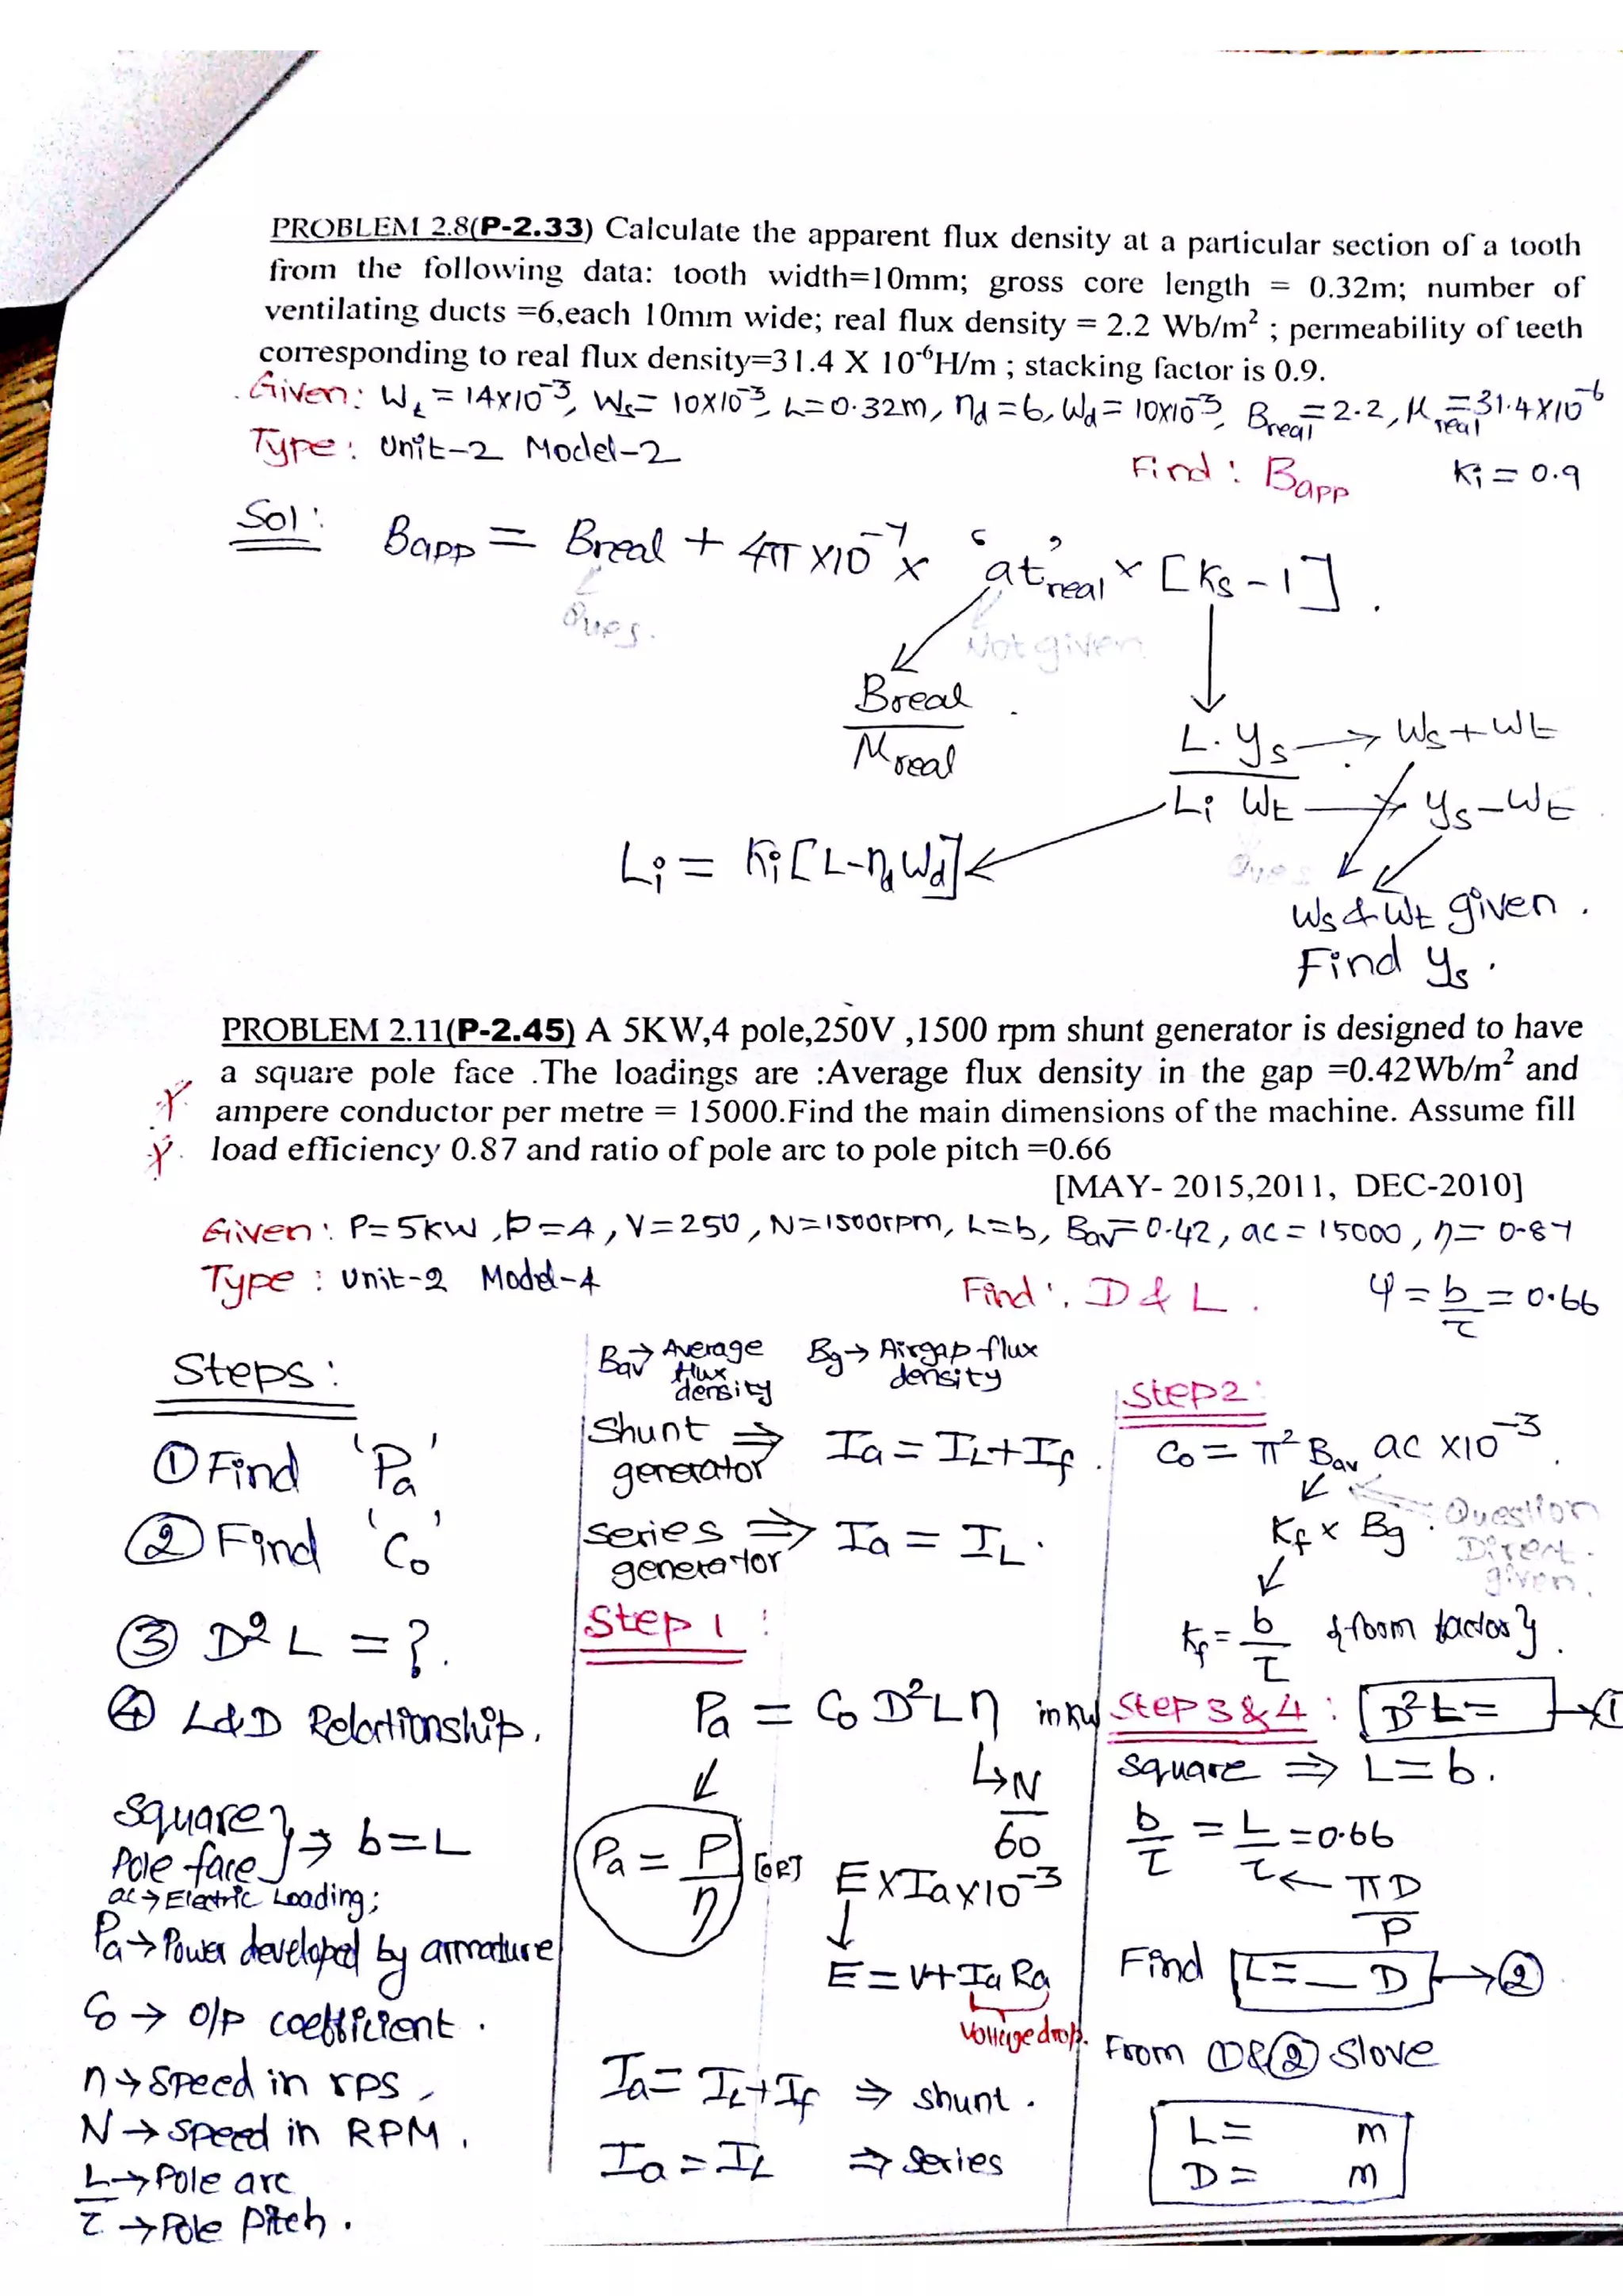 PROBLEM 2.8(P-2.33) Calculate the apparent flux density at a particular section of a tooth
from the following data: tooth width=10mm; gross core length = 0.32m; number of
ventilating ducts =6,each 10mm wide; real flux density = 2.2 Wb/m² ; permeability of teeth
corresponding to real flux density=31.4 X 10⁻⁶H/m ; stacking factor is 0.9.
Given: Wt = 14x10⁻³, Ws= 10x10⁻³, L=0.32m, nd =6, Wd= 10x10⁻³, Breal=2.2, μreal=31.4x10⁻⁶
Type: Unit-2 Model-2
Find: Bapp
Ki = 0.9
Sol:
Bapp = Breal + 4π x10⁻⁷ x 'at'real x [Ks-1].
Ques.
Not given
Breal
μreal
L. ys → Ws+Wt
Li Wt → ys-Wt
Li = Ki[L-ndWd]
Ques
Ws & Wt given.
Find ys.
PROBLEM 2.11(P-2.45) A 5KW,4 pole,250V ,1500 rpm shunt generator is designed to have
a square pole face .The loadings are :Average flux density in the gap =0.42Wb/m² and
ampere conductor per metre = 15000.Find the main dimensions of the machine. Assume fill
load efficiency 0.87 and ratio of pole arc to pole pitch =0.66
[MAY- 2015,2011, DEC-2010]
Given: P=5kW, p=4, V=250, N=1500rpm, L=b, Bav=0.42, ac=15000, η=0.87
Type: Unit-2 Model-4
Find: D & L.
ψ = b/τ = 0.66
Steps:
① Find 'Pa'
② Find 'Co'
③ D²L = ?.
④ L&D Relationship.
Square
Pole face } → b=L
ac → Electric Loading;
Pa → Power developed by armature
Co → o/p coefficient.
n → speed in rps,
N → speed in RPM.
L → Pole arc
τ → Pole pitch.
Bav → Average flux density
Bg → Airgap flux density
Shunt generator ⇒ Ia = IL+If.
series generator ⇒ Ia = IL.
Step 1:
Pa = Co D²Ln in kW
N
60
Pa = P/η [OR] E x Ia x10⁻³
E = V+Ia Ra
Voltage drop.
Ia= IL+If ⇒ shunt.
Ia = IL ⇒ Series
Step2:
Co = π² Bav ac x10⁻³.
Kf x Bg.
Question
Direct.
given.
Kf = b/τ {foom factor}.
Step 3&4: D²L= → ①
Square ⇒ L=b.
b/τ = L/τ =0.66
τ ← πD/P
Find L=_ D → ②
From ①&② Slove
L= m
D= m